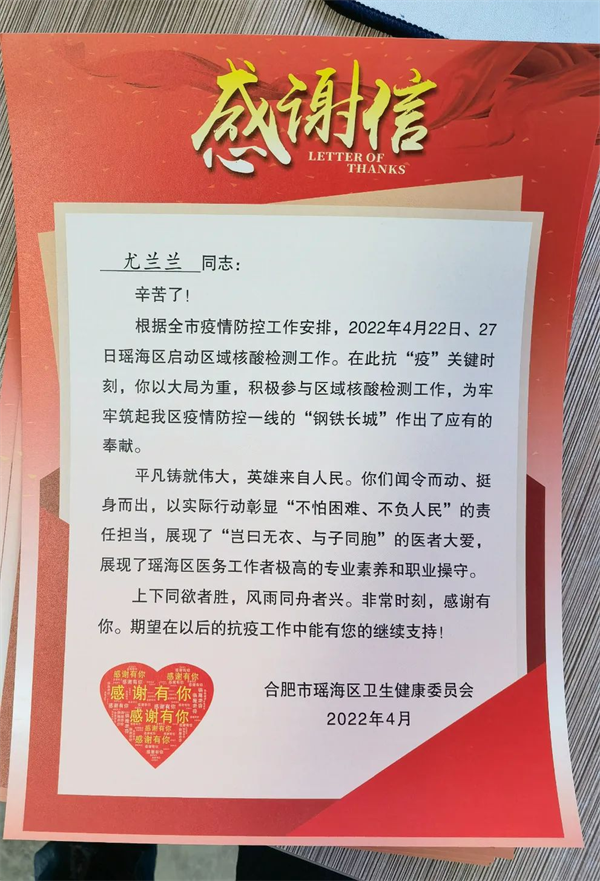 感谢信
LETTER OF
THANKS
尤兰兰 同志：
辛苦了！
根据全市疫情防控工作安排，2022年4月22日、27
日瑶海区启动区域核酸检测工作。在此抗“疫”关键时
刻，你以大局为重，积极参与区域核酸检测工作，为牢
牢筑起我区疫情防控一线的“钢铁长城”作出了应有的
奉献。
平凡铸就伟大，英雄来自人民。你们闻令而动、挺
身而出，以实际行动彰显“不怕困难、不负人民”的责
任担当，展现了“岂曰无衣、与子同胞”的医者大爱，
展现了瑶海区医务工作者极高的专业素养和职业操守。
上下同欲者胜，风雨同舟者兴。非常时刻，感谢有
你。期望在以后的抗疫工作中能有您的继续支持！
感谢有你
感谢有你
感谢有你
感谢有你
感谢有你
合肥市瑶海区卫生健康委员会
2022年4月